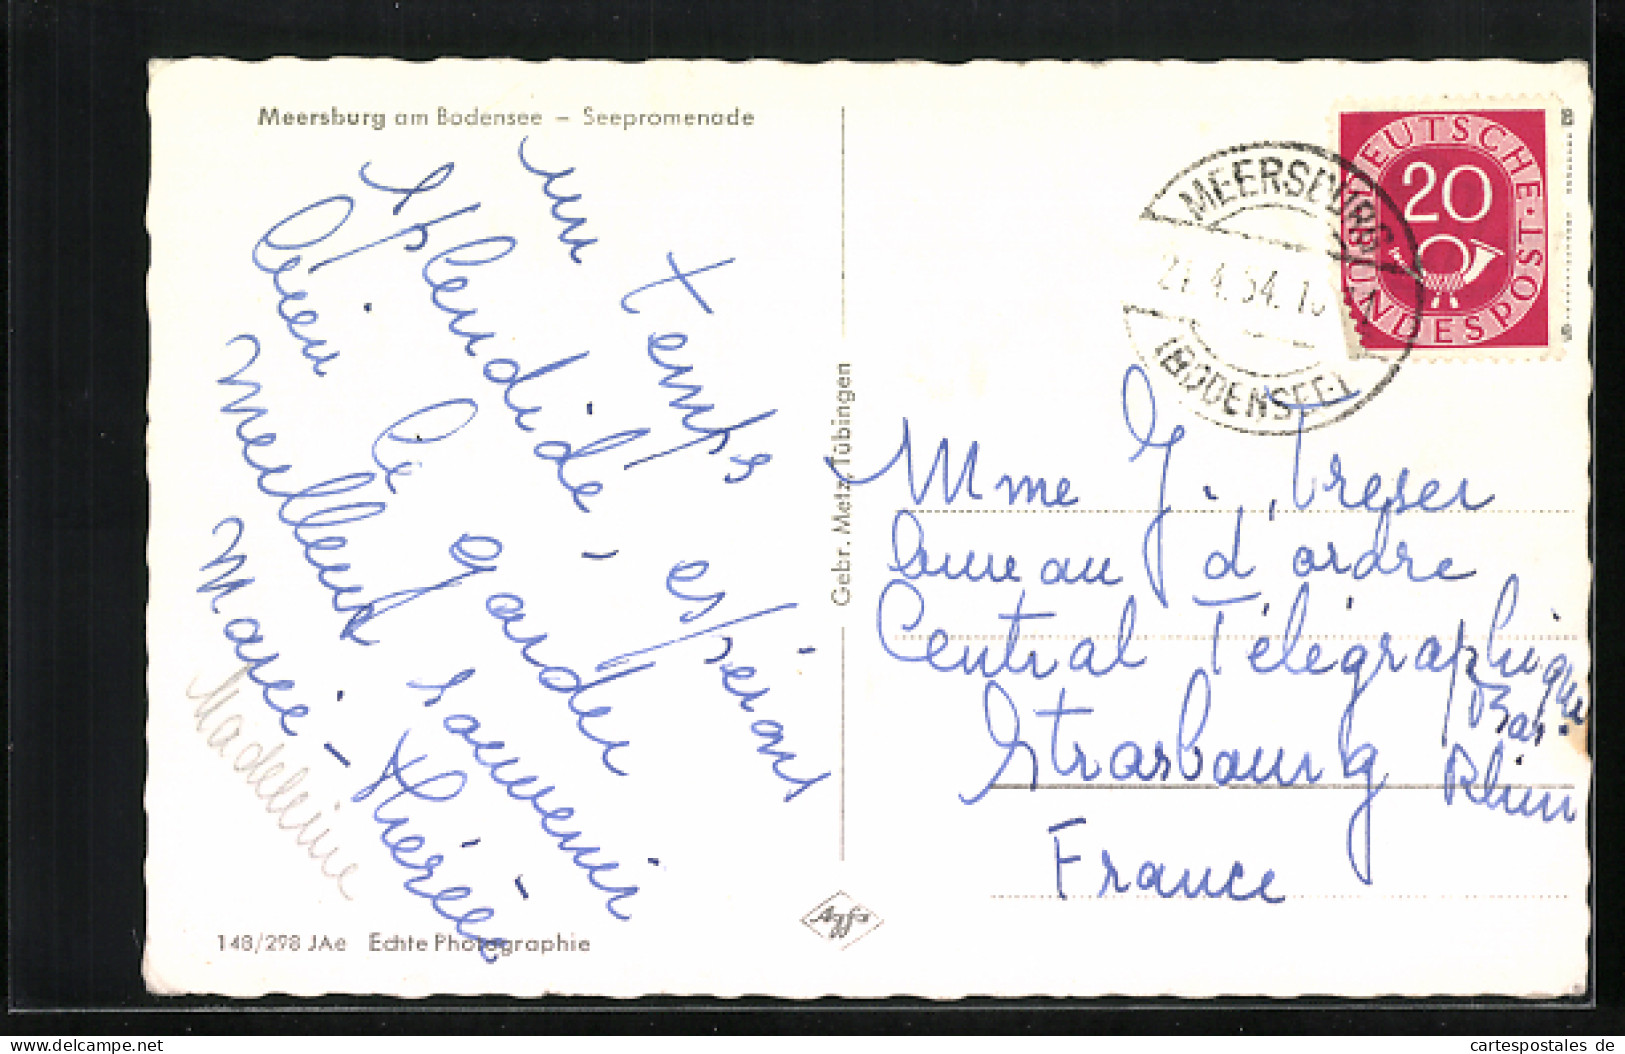 Meersburg am Bodensee – Seepromenade
un temps
splendide, espérons
bien le garder
meilleur souvenir
Marie-Thérèse
Madeleine
148/298 JAe Echte Photographie
Gebr. Metz, Tübingen
Agfa
MEERSBURG
4.54.
(BODENSEE)
DEUTSCHE BUNDESPOST
20
Mme J. Treser
bureau d'ordre
Central Télégraphique
Strasbourg Bas-
Rhin
France
cartespostales.de
www.cartespostales.de